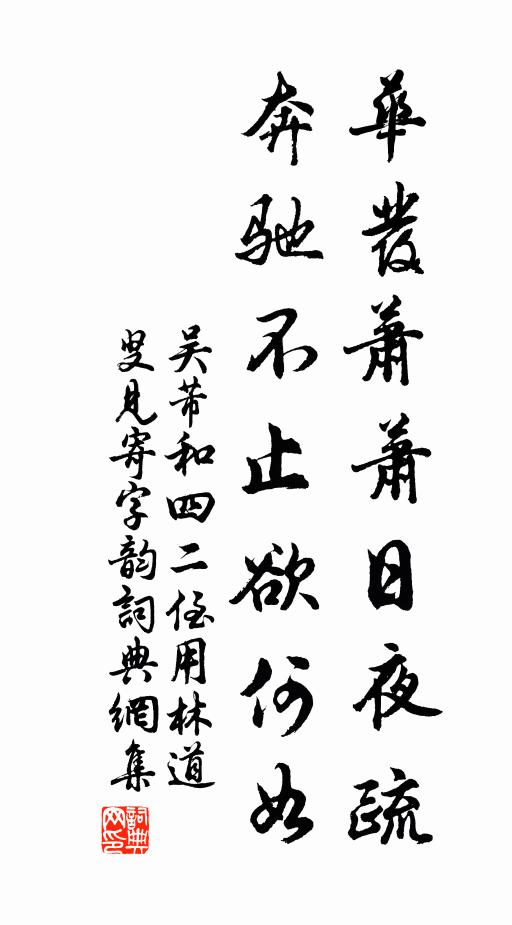 華發蕭蕭日夜疏
奔馳不止欲何如
吴芾和四二侄用林道
叟見寄字韵詞典網集
詞典网印